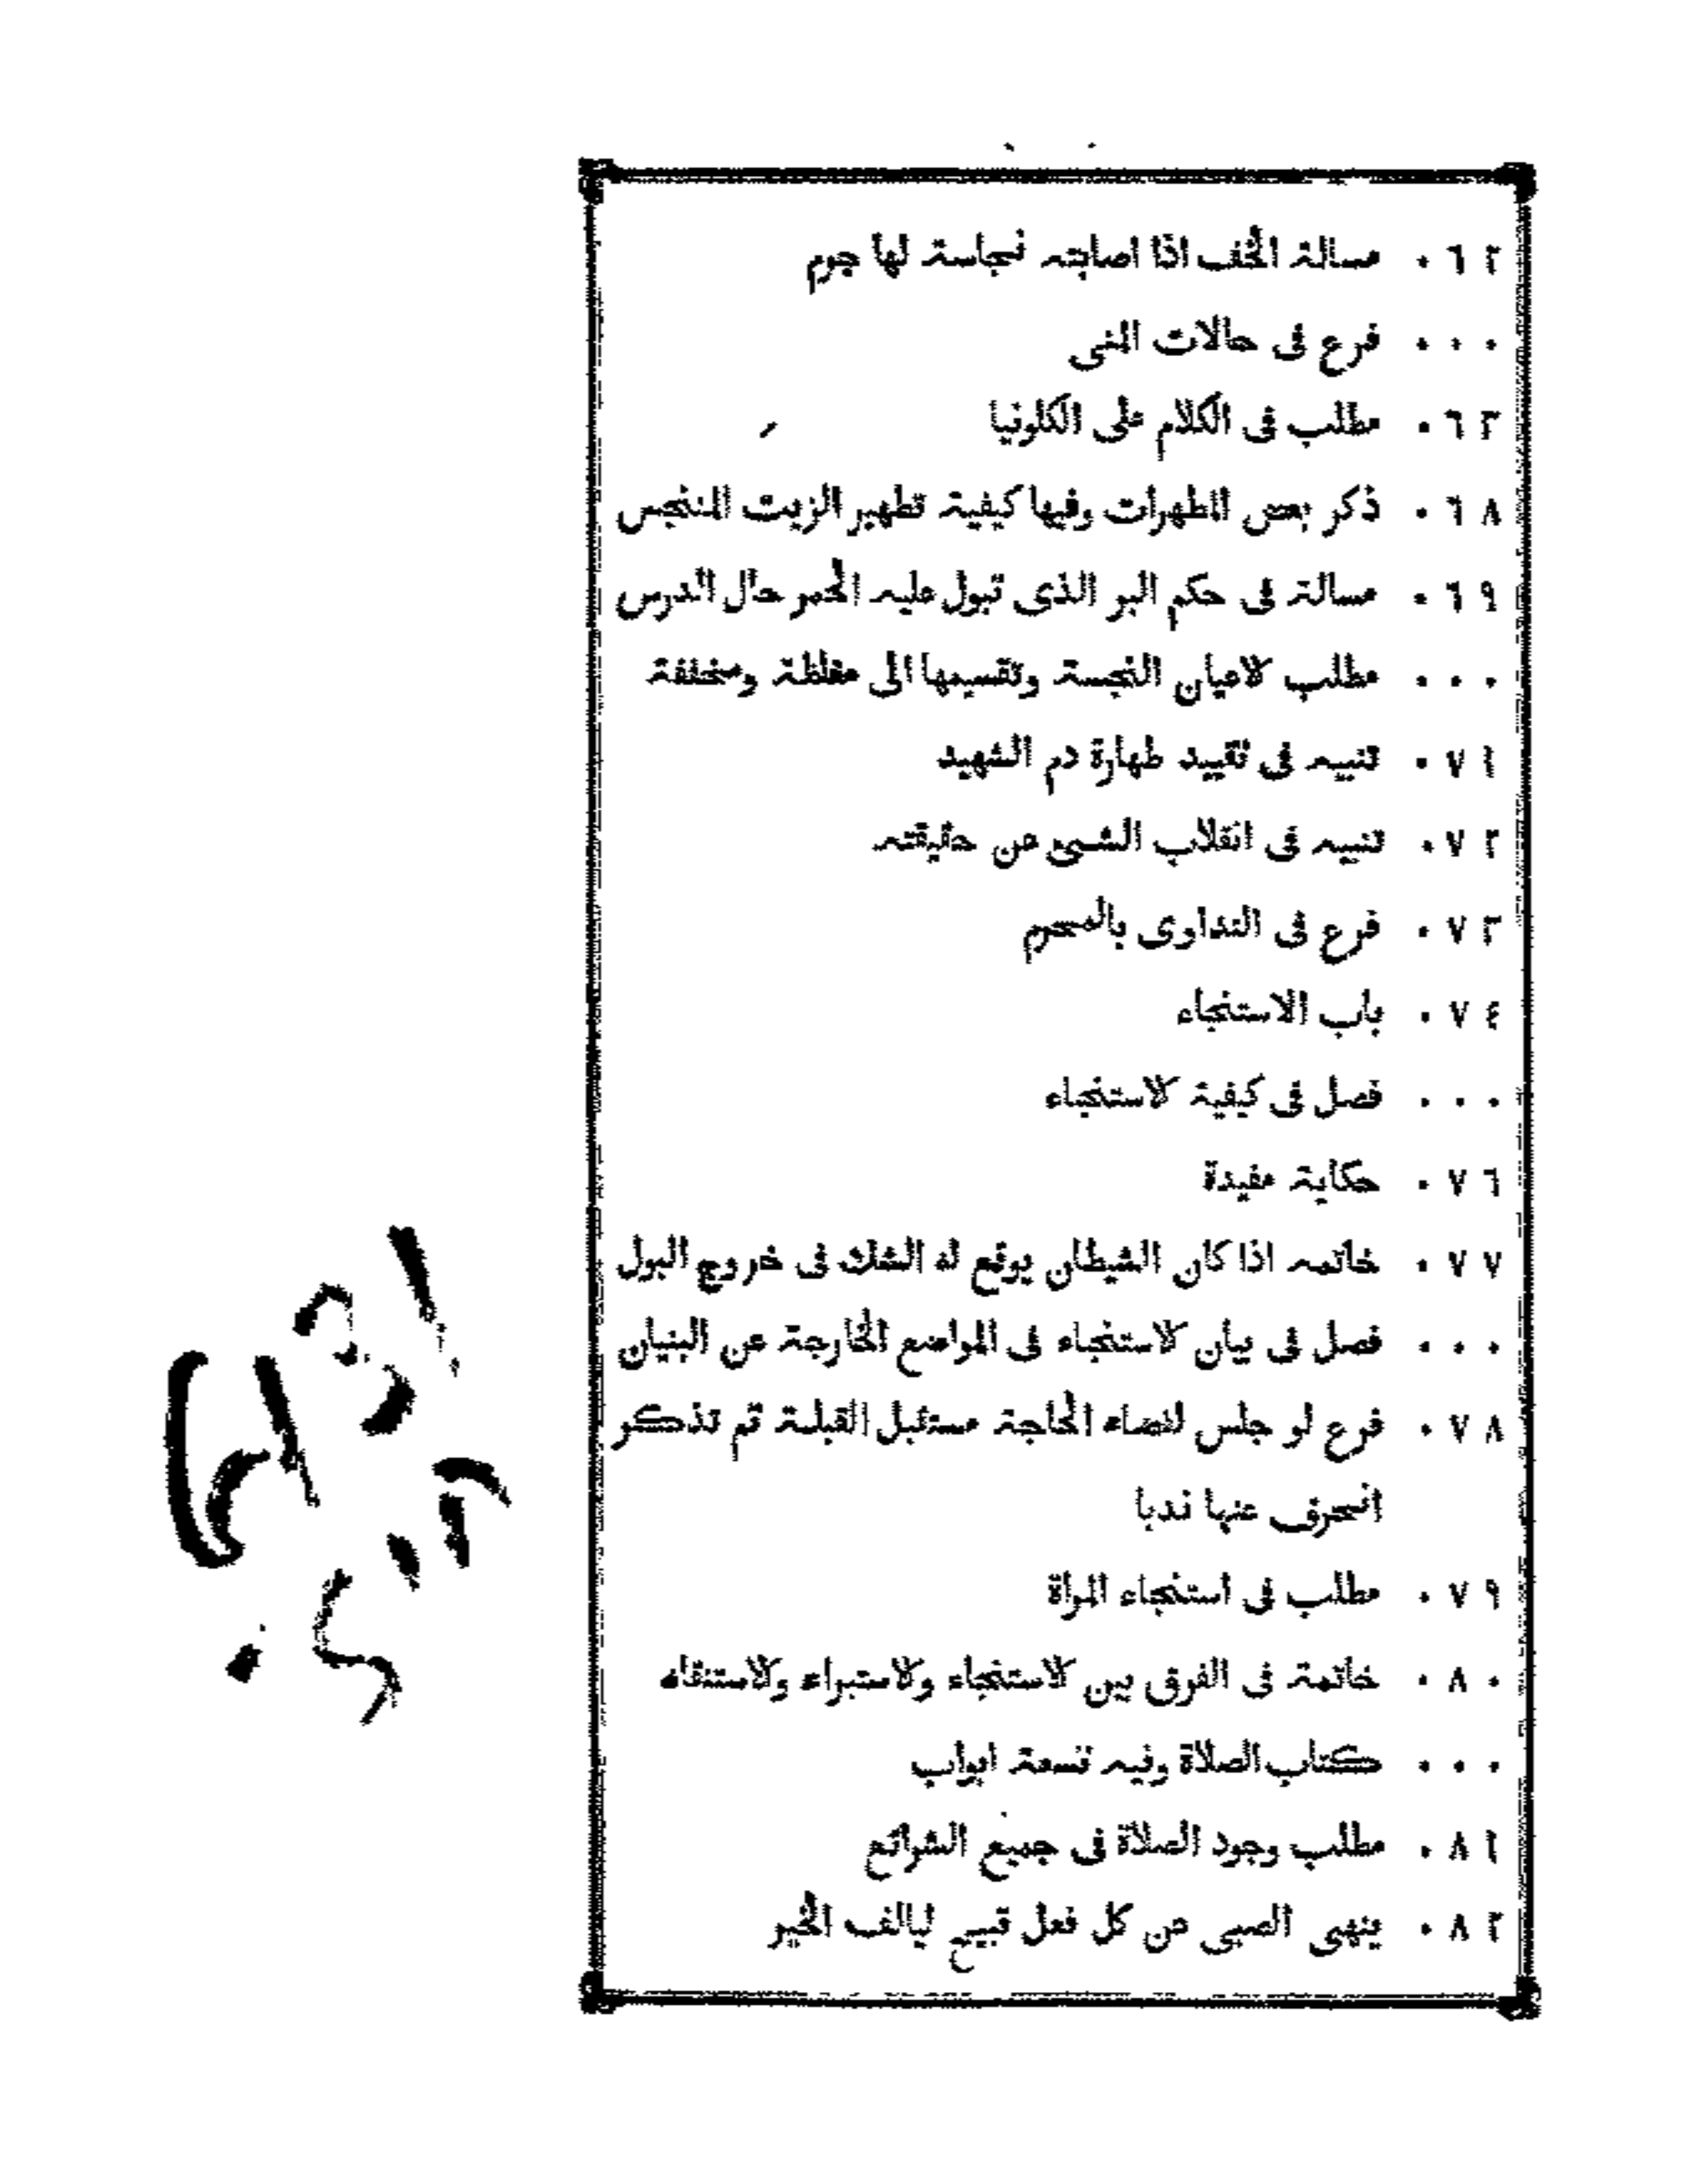 ٠٦٢ مسالة الخف اذا اصابته نجاسة لها جرم
٠٠٠ فرع فى حالات المنى
٠٦٣ مطلب فى الكلام على الكلونيا
٠٦٨ ذكر بعض المطهرات وفيها كيفية تطهير الزيت المتنجس
٠٦٩ مسالة فى حكم البر الذى تبول عليه الحمر حال الدرس
٠٠٠ مطلب الاعيان النجسة وتقسيمها الى مغلظة ومخففة
٠٧١ تنبيه فى تقييد طهارة دم الشهيد
٠٧٢ تنبيه فى انقلاب الشىء عن حقيقته
٠٧٣ فرع فى التداوى بالمحرم
٠٧٤ باب الاستنجاء
٠٠٠ فصل فى كيفية الاستنجاء
٠٧٦ حكاية مفيدة
٠٧٧ خاتمه اذا كان الشيطان يوقع له الشك فى خروج البول
٠٠٠ فصل فى بيان الاستنجاء فى المواضع الخارجة عن البنيان
٠٧٨ فرع لو جلس لقضاء الحاجة مستقبل القبلة ثم تذكر
انحرف عنها ندبا
٠٧٩ مطلب فى استنجاء المراة
٠٨٠ خاتمة فى الفرق بين الاستنجاء والاستبراء والاستنقاء
٠٠٠ كتاب الصلاة وفيه تسعة ابواب
٠٨١ مطلب وجود الصلاة فى جميع الشرائع
٠٨٢ ينهى الصبى عن كل فعل قبيح ليالف الخير